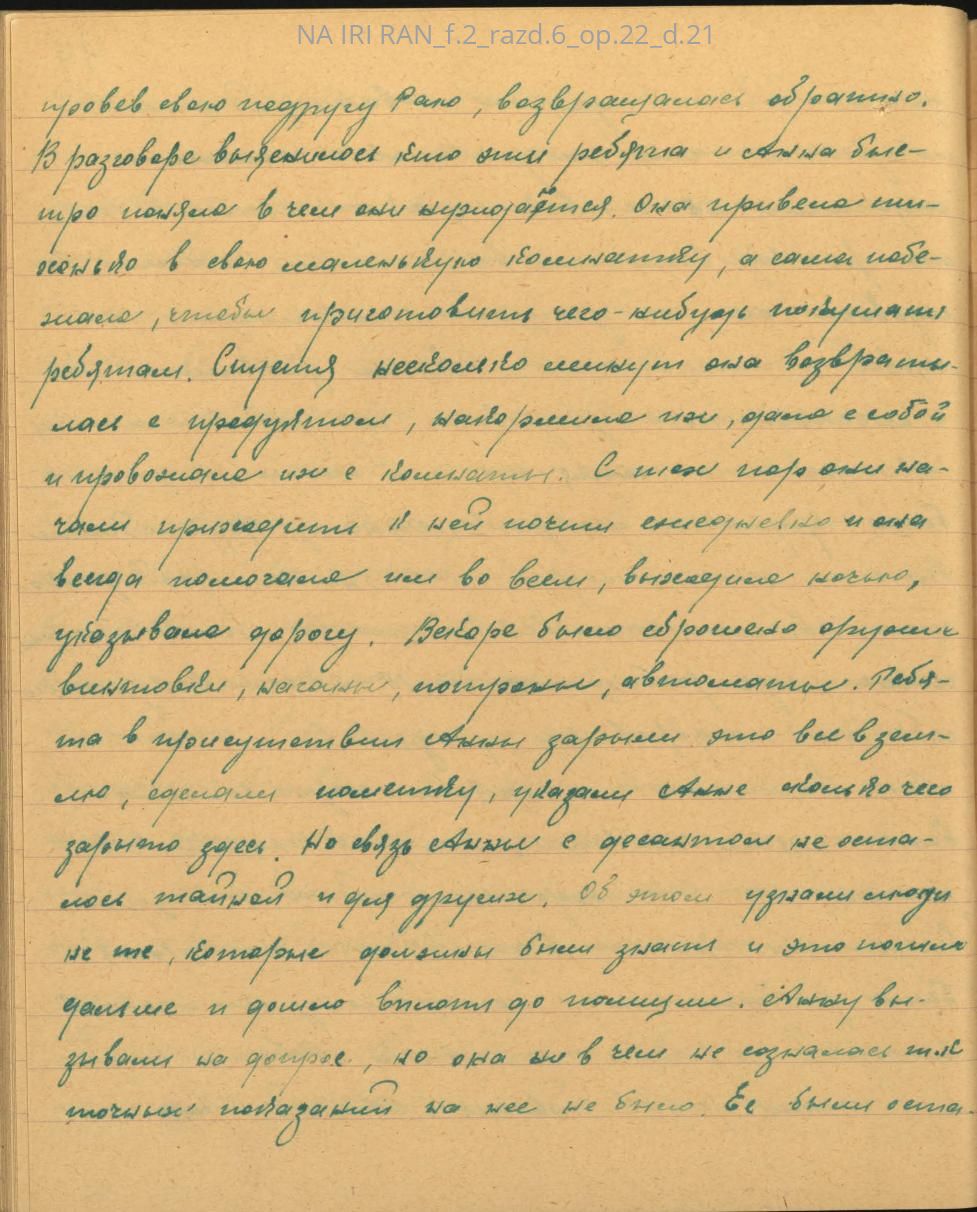 NA IRI RAN_f.2_razd.6_op.22_d.21
провев свою подругу Раю, возвращалась обратно.
В разговоре выяснилось кто эти ребята и Анна быс-
тро поняла в чем они нуждаются. Она привела ти-
хонько в свою маленькую комнатку, а сама побе-
жала, чтобы приготовить чего-нибудь покушать
ребятам. Спустя несколько минут она возврати-
лась с продуктом, накормила их, дала с собой
и провожала их с комнаты. С тех пор они на-
чали приходить к ней почти ежедневно и она
всегда помогала им во всем, выходила ночью,
указывала дорогу. Вскоре было сброшено оружие
винтовки, наганы, патроны, автоматы. Ребя-
та в присутствии Анны зарыли это все в зем-
лю, сделали пометку, указали Анне сколько чего
зарыто здесь. Но связь Анны с десантом не оста-
лось тайной и для других. Об этом узнали люди
не те, которые должны были знать и это пошло
дальше и дошло вплоть до полиции. Анну вы-
зывали на допрос, но она ни в чем не созналась т.к
точных показаний на нее не было. Ее были оста-